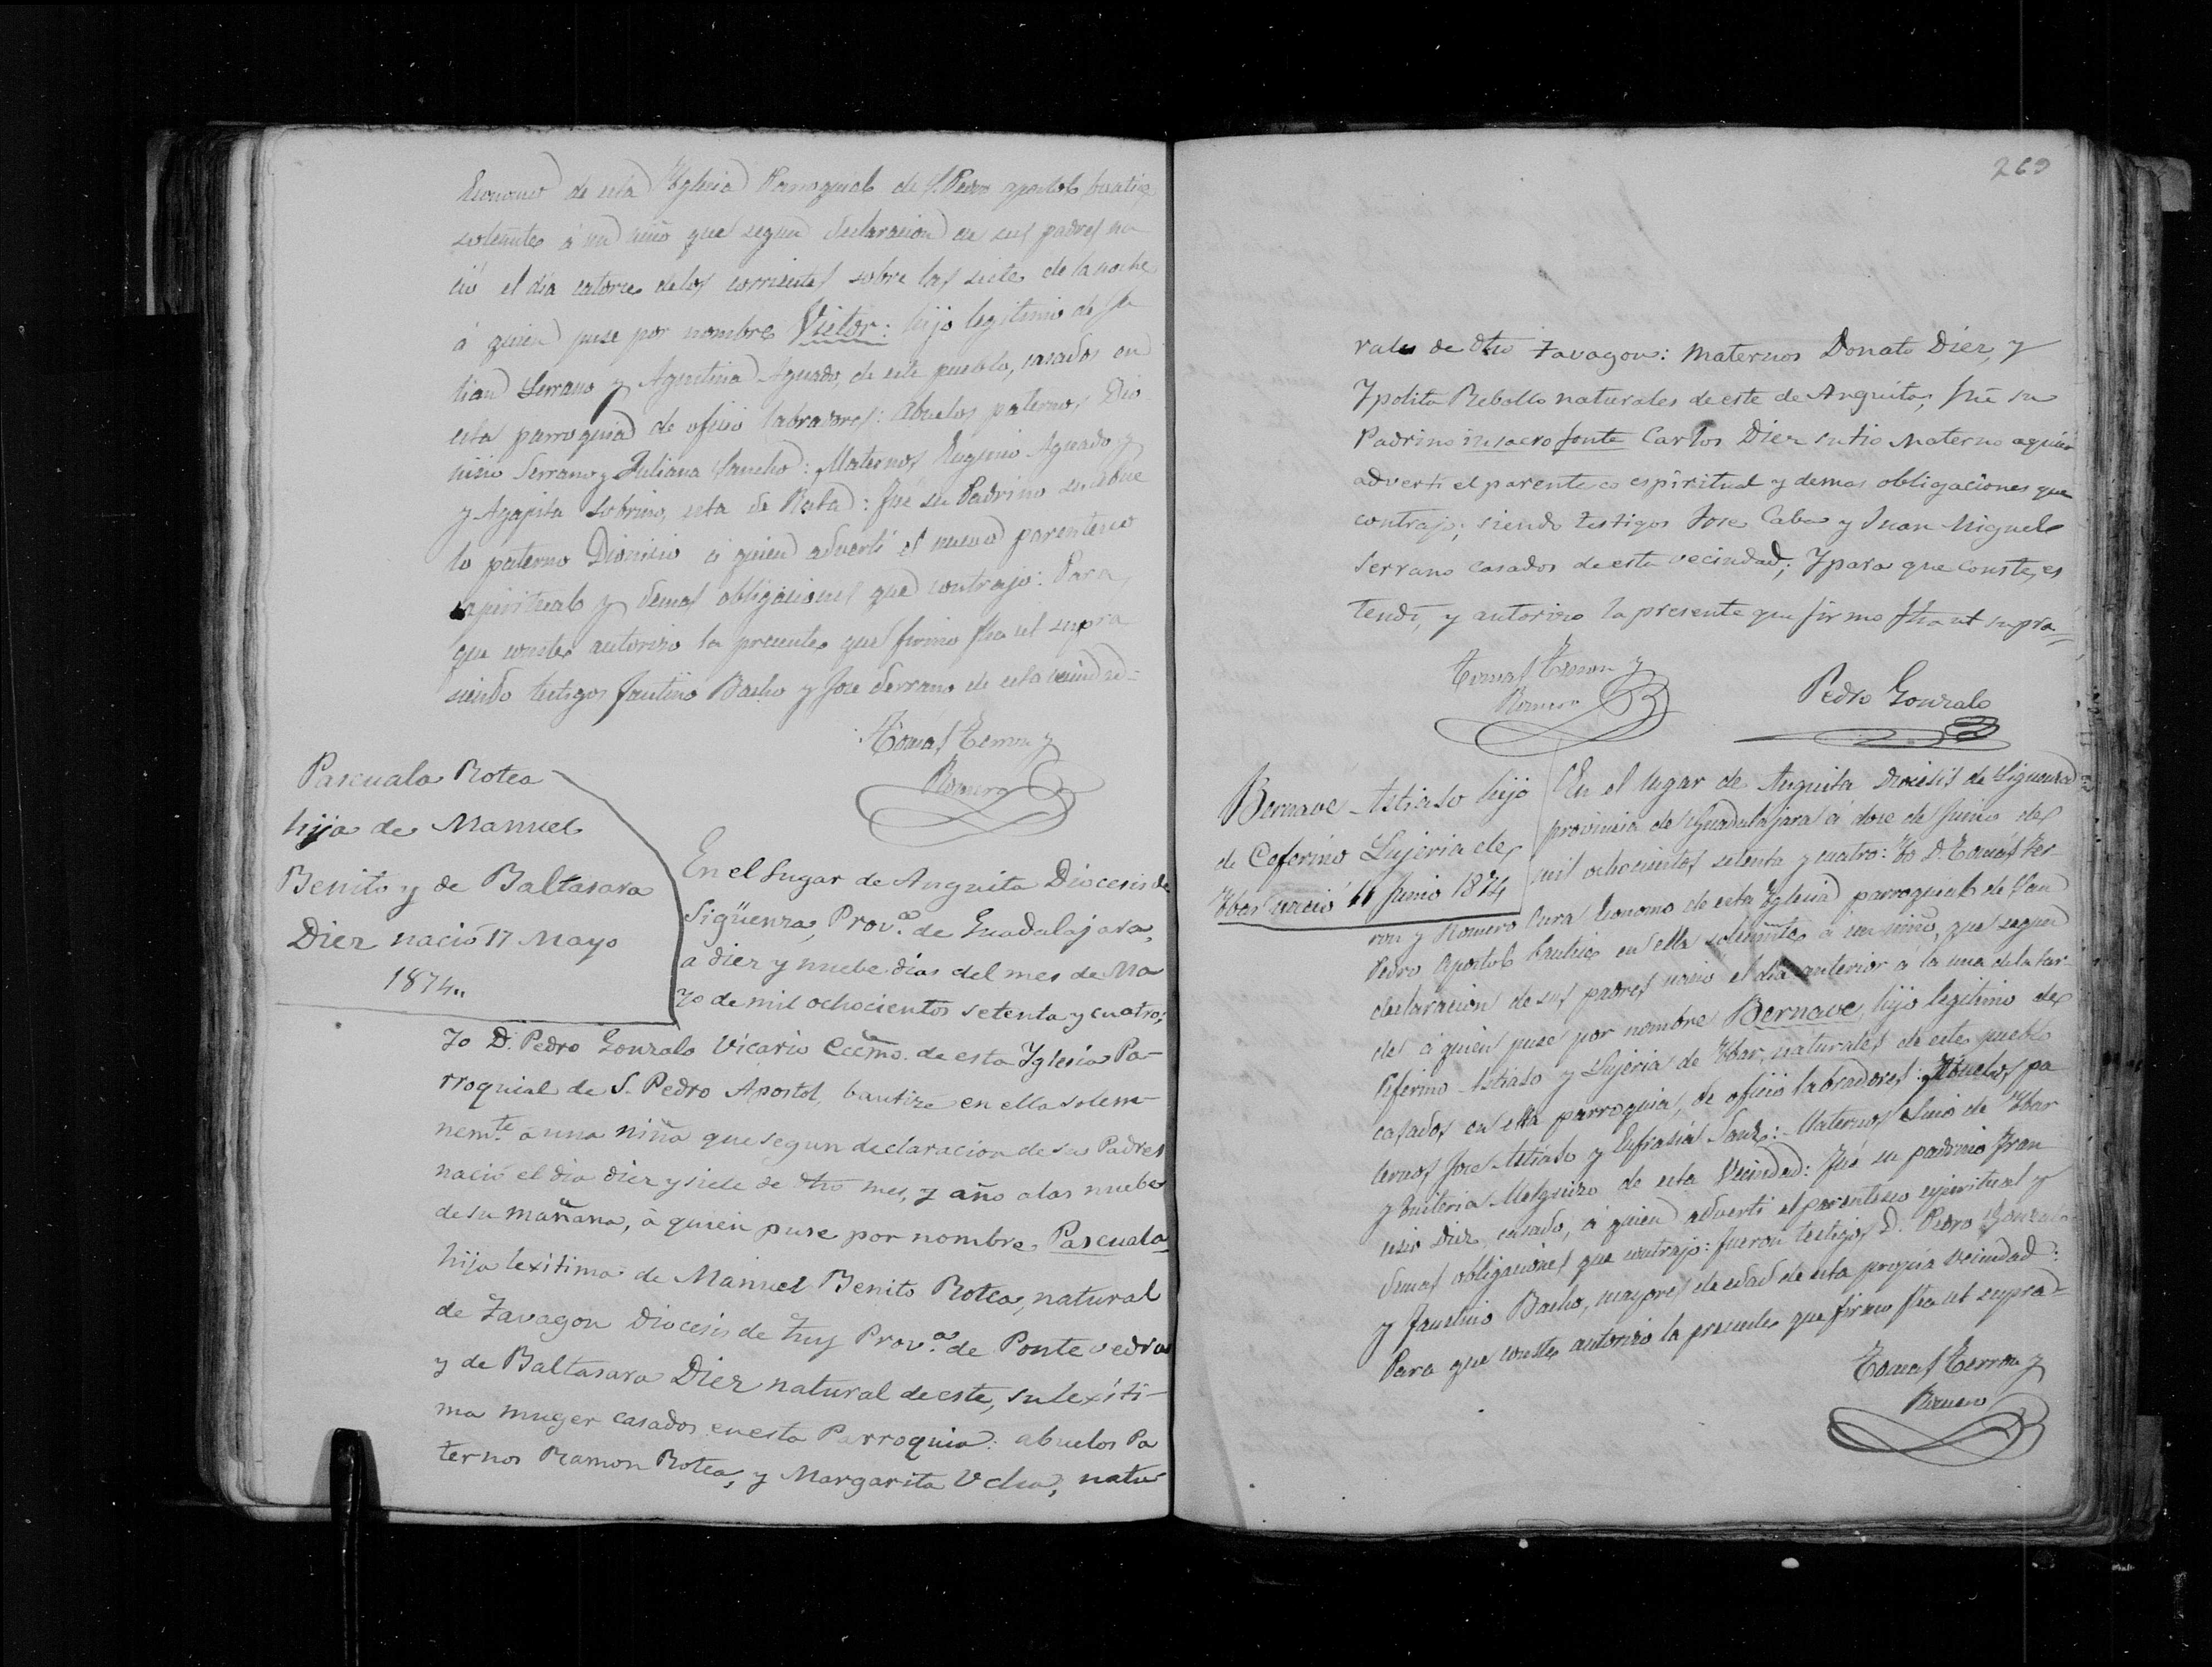 Economo de esta Yglesia Parroquial de S. Pedro apostol bautice
solemte á un niño que segun declaracion de sus padres na
ció el dia catorce de los corrientes sobre las siete de la noche
á quien puse por nombre Victor: hijo legitimo de Ju
lian Serrano y Agustina Aguado, de este pueblo, casados en
esta parroquia de oficio labradores: Abuelos paternos Dio
nisio Serrano y Juliana Sancho: Maternos Eugenio Aguado y
y Agapita Sobrino, esta de Rata: Fué su Padrino su abue
lo paterno Dionisio á quien advertí el nuevo parentesco
espiritual y demas obligaciones que contrajo: Para
que conste autorizo la presente que firmo fha ut supra
siendo testigos Faustino Bacho y Jose Serrano de esta vecindad=
Tomás Terron y
Romero
Pascuala Rotea
hija de Manuel
Benito y de Baltasara
Diez nació 17 Mayo
1874„
En el Lugar de Anguita Diocesis de
Sigüenza, Prov.a de Guadalajara,
a diez y nuebe dias del mes de Ma
yo de mil ochocientos setenta y cuatro;
Yo D. Pedro Gonzalo Vicario Eccmo. de esta Yglesia Pa-
rroquial de S. Pedro Apostol, bautizé en ella solem-
nemte á una niña que segun declaracion de sus Padres
nació el dia diez y siete de dho mes, y año a las nuebe
de su mañana, á quien puse por nombre, Pascuala
hija lexitima de Manuel Benito Rotea, natural
de Zavagon Diocesis de Tuy Prov.a de Pontevedra
y de Baltasara Diez natural de este, su lexiti-
ma muger casados en esta Parroquia: abuelos Pa
ternos Ramon Rotea, y Margarita natu
269
rales de dho Zavagon: Maternos Donato Diez, y
Ypolita Rebollo naturales de este de Anguita; fué su
Padrino in sacro fonte Carlos Diez su tio Materno a quien
advertí el parentesco espiritual y demas obligaciones que
contrajo; siendo testigos Jose Cabra y Juan Miguel
Serrano casados de esta vecindad; Y para que conste, es
tendí, y autorizo la presente que firmo fha ut supra=
Tomas Terron y
Romero
Pedro Gonzalo
Bernave Astiaso hijo
de Ceferino Lujeria de
Ybar nació 11 Junio 1874
En el lugar de Anguita Diocesis de Siguenza
provincia de Guadalajara á doce de Junio de
mil ochocientos setenta y cuatro: Yo D. Tomás Ter-
ron y Romero Cura Economo de esta Yglesia parroquial de San
Pedro Apostol bautice en ella solemnte á un niño, que segun
declaracion de sus padres nacio el dia anterior a la una de la tar-
de, á quien puse por nombre Bernave, hijo legitimo de
Ceferino Astiaso y Lujeria de Ybar, naturales de este pueblo
casados en esta parroquia, de oficio labradores: Abuelos pa
ternos Jose Astiaso y Eufrasia Sanz: Maternos Luis de Ybar
y Quiteria Melguizo de esta Vecindad: Fué su padrino Fran
cisco Diez, casado, á quien advertí el parentesco espiritual y
demas obligaciones que contrajo: fueron testigos D. Pedro Gonzalo
y Faustino Bacho, mayores de edad de esta propia vecindad:
Para que conste, autorizo la presente que firmo fha ut supra=
Tomas Terron y
Romero